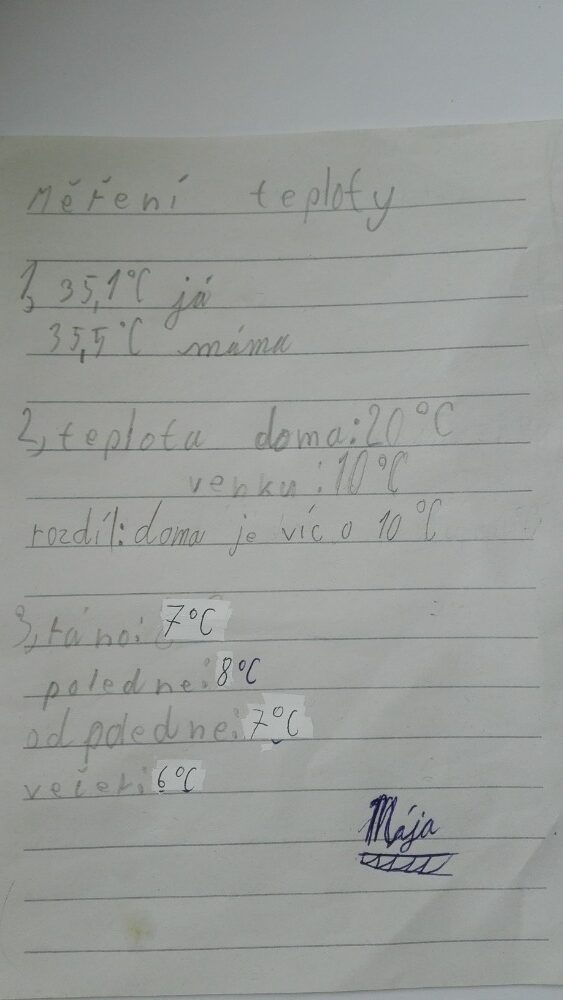 Měření teploty
1, 35,1°C já
35,5°C máma
2, teplota doma: 20°C
venku: 10°C
rozdíl: doma je víc o 10°C
3, ráno: 7°C
poledne: 8°C
odpoledne: 7°C
večer: 6°C
Mája